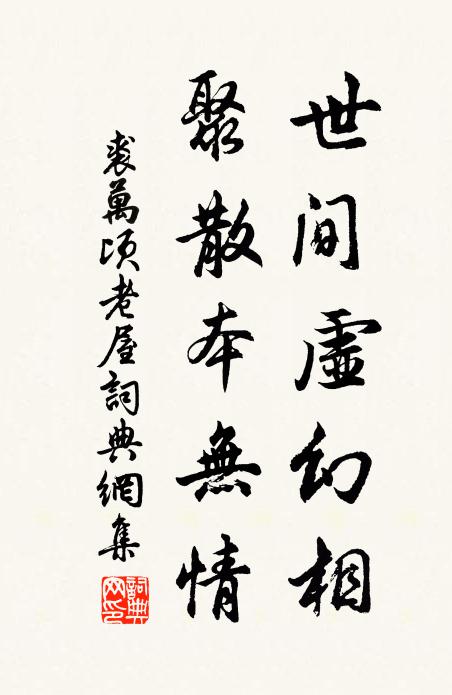 世间虚幻相
聚散本無情
裘萬頃老屋詞典網集
詞典網印